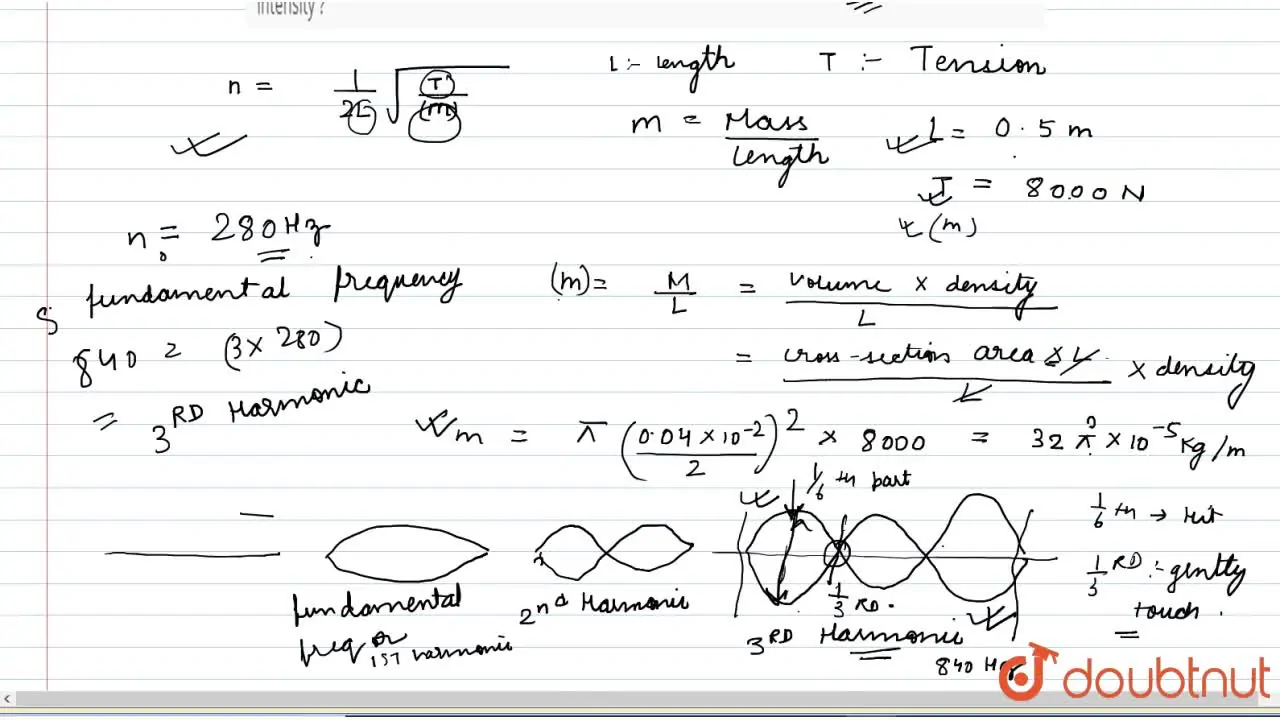 intensity?
n = 1/2L √(T/(m))
L :- length T :- Tension
m = Mass/Length
L = 0.5 m
T = 8000 N
(m)
n₀ = 280 Hz
fundamental frequency
840 = (3 × 280)
= 3RD Harmonic
(m) = M/L = volume × density / L
= cross-section area × L / L × density
m = π (0.04 × 10⁻² / 2)² × 8000 = 32 π × 10⁻⁵ kg/m
1/6 th part
1/6 th → Hit
1/3 RD :- gently
touch.
1/3 RD.
fundamental
freq or
1ST harmonic
2nd Harmonic
3RD Harmonic
840 Hz
doubtnut